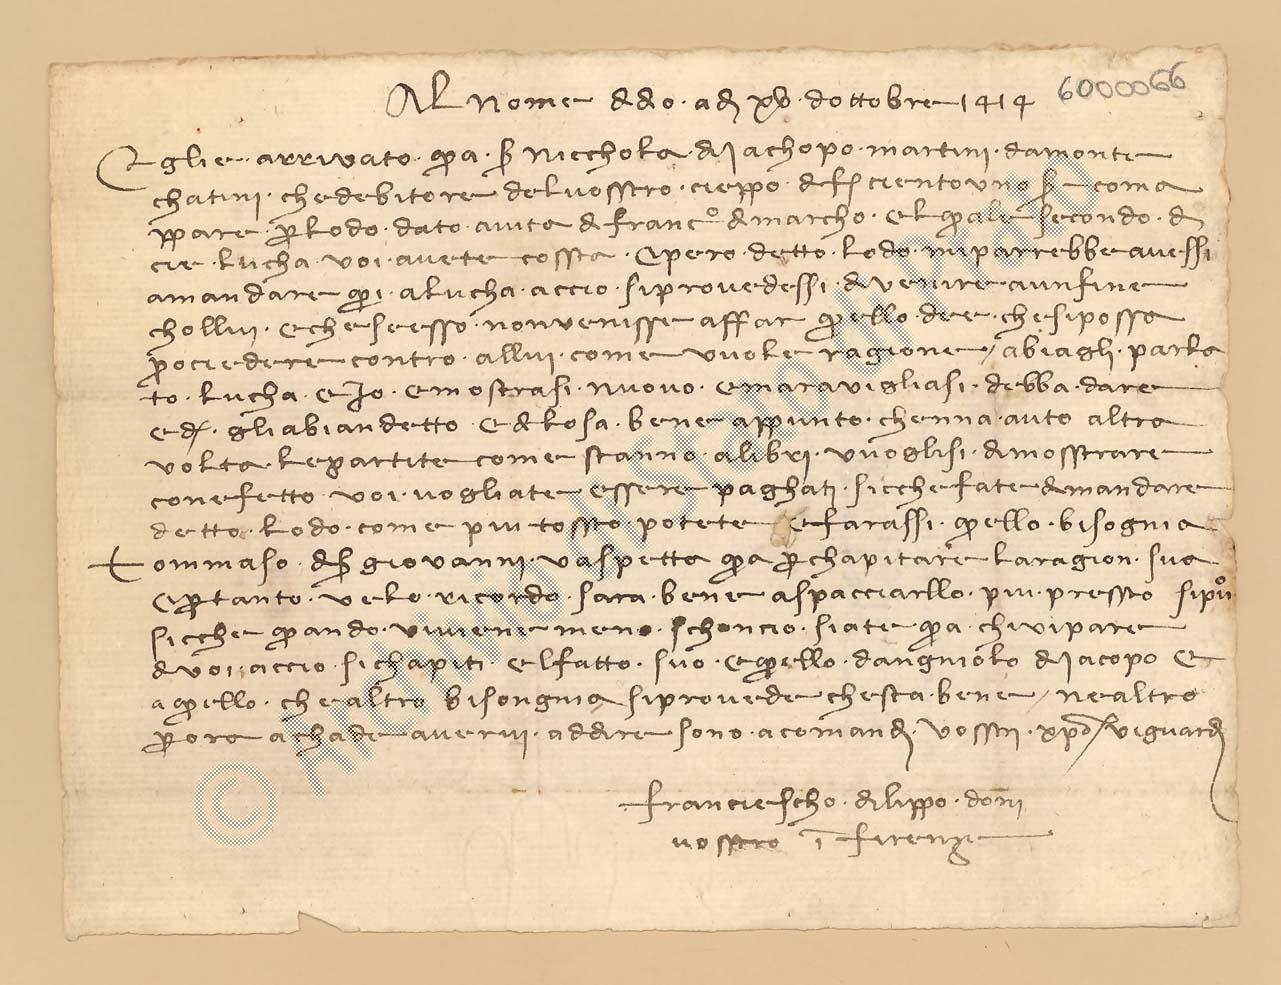 Al nome d ddo. adj xv. dottobre 1414
6000066
Eglie. arrivato. qua. s niccholo di Jachopo. martini. damonte
chatini. che debitore del vosstro. cieppo. di f ciento uno s coma
ppare. p lodo. dato. avuto di franco di marcho. el quale secondo. di
cie. lucha. voi. avete cossta. e pero. detto. lodo. mi parrebbe avessi
a mandare qui. a lucha. accio. si provedessi. di venire a un fine
chollui. e che se esso. non venisse affar quello. dee. che si possa
prociedere contro. allui. come vuole ragione / abiagli. parla
to. lucha. e Jo. e mostrasi. nuovo. e maravigliasi. debba. dare
e d. gli abian detto e di losa. bene appunto. che nna. auto altra
volta. le partite come stanno. a libri. vuoglisi. dimosstrare
con efetto. voi. vogliate essere paghati. sicche fate di mandare
detto. lodo. come piu tossto. potete e farassi. quello. bisognia
Tommaso. di s giovanni. vaspetta qua p chapitare la ragion. sua
e p tanto. velo. ricordo. sara. bene a spacciarllo. piu. pressto si puo
sicche quando. vi viene meno. schoncio. siate qua. chi vi pare
di voi. accio. si chapiti. el fatto. suo. e quello. dangniolo di Jacopo e
a quello. che altro bisongnia si provede che sta. bene / ne altro
p ora achade avervi. a ddire sono. a comandi. vosstri. xpo / vi guardi
Franciescho. di lippo. doni
vosstro i Firenze
© Archivio di Stato di Prato